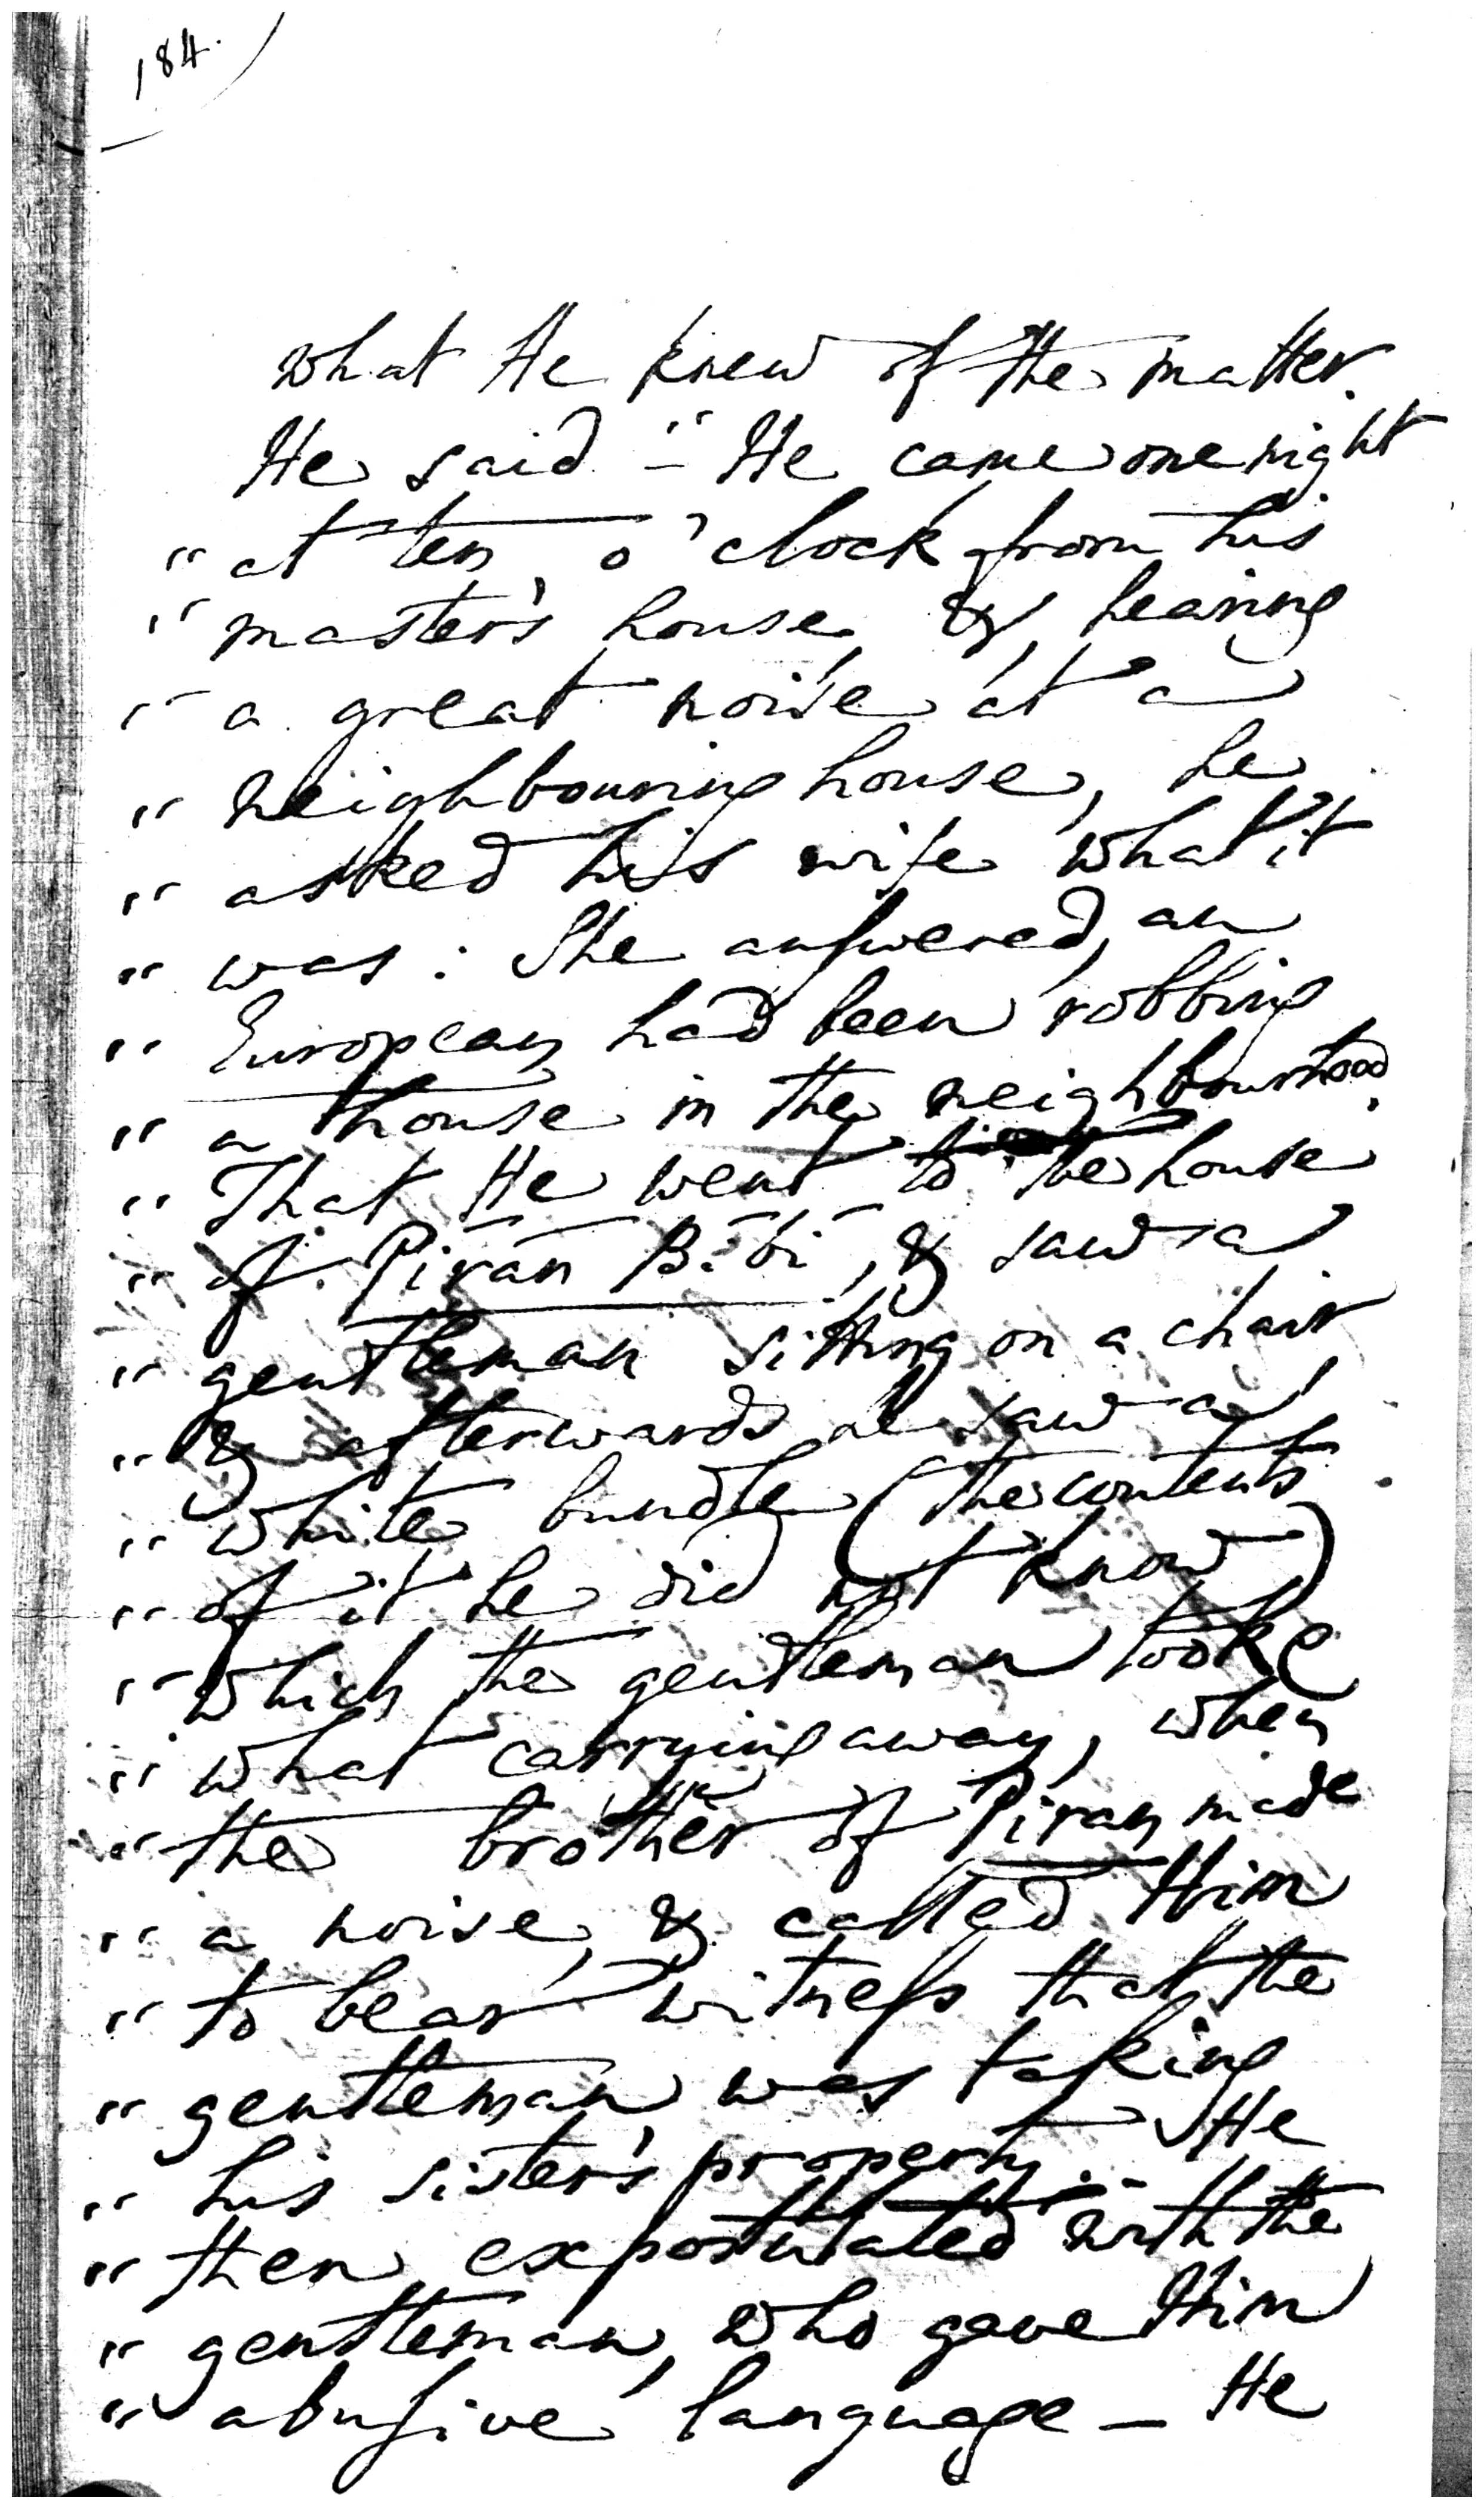 184.
what He knew of the matter.
He said – " He came one night
" at ten o'clock from his
" master's house, &, hearing
" a great noise at a
" neighbouring house, he
" asked his wife what it
" was: She answered, an
" European had been robbing
" a house in the neighbourhood.
" That He went to the house
" of Piran Bibi, & saw a
" gentleman sitting on a chair
" & afterwards he saw a
" white bundle (the contents
" of it he did not know)
" which the gentleman took &
" what carrying away, when
" the brother of Piran made
" a noise, & called Him
" to bear witness that the
" gentleman was taking
" his sister's property. – He
" then expostulated with the
" gentleman, who gave Him
" abusive language – He